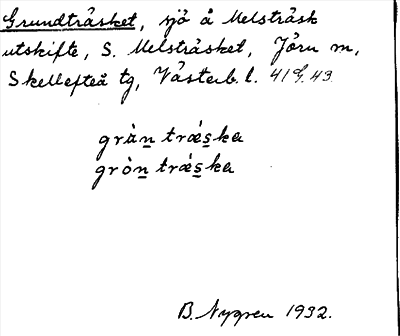 Grundträsket, sjö å Melsträsk
utskifte, S. Melsträsket, Jörn m,
Skellefteå tg, Västerb. l. 41 G. 43
grȧn trǽska
grȯn trǽska
B. Nygren 1932.